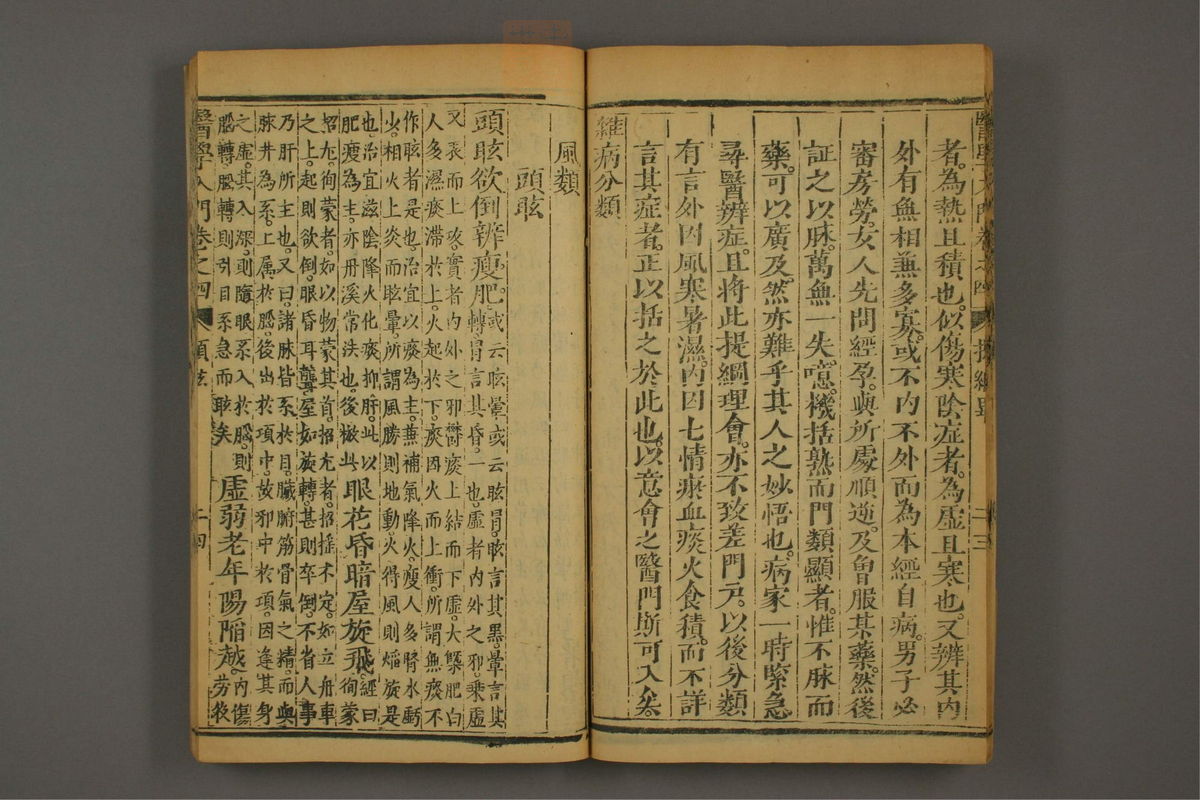 醫學入門卷之四 提綱畢 二三
者。為熱且積也。似傷寒陰症者。為虛且寒也。又辨其內
外有無相兼多寡。或不內不外而為本經自病。男子必
審房勞。女人先問經孕。與所處順逆。及曾服某藥。然後
証之以脉。萬無一失。噫。機括熟而門類顯者。惟不脉而
藥。可以廣及。然亦難乎其人之妙悟也。病家一時緊急
尋醫辨症。且將此提綱理會。亦不致差門戶。以後分類
有言外因風寒暑濕。內因七情瘀血痰火食積。而不詳
言其症者。正以括之於此也。以意會之醫門斯可入矣。
雜病分類
風類
頭眩
頭眩欲倒辨瘦肥。或云眩暈或云眩冒。眩言其黑。暈言其
轉冒言其昏。一也。虛者內外之邪。乘虛
又表而上攻。實者內外之邪鬱痰上結而下虛。大槩肥白
人多濕痰滯於上。火起於下。痰因火而上衝。所謂無痰不
作眩者是也。治宜以痰為主。兼補氣降火。瘦人多腎水虧
少。相火上炎而眩暈。所謂風勝則地動。火得風則焰旋是
也。治宜滋陰降火化痰抑肝。此以
肥瘦為主。亦丹溪常法也。後倣此
眼花昏暗屋旋飛。經曰
徇蒙
招尤。徇蒙者。如以物蒙其首。招尤者。招搖不定。如立舟車
之上。起則欲倒。眼昏耳聾。屋如旋轉。甚則卒倒。不省人事
乃肝所主也。又曰。諸脉皆系於目。臟腑筋骨氣之精。而與
脉并為系。上属於腦。後出於項中。故邪中於項。因逢其身
之虛。其入深。則隨眼系入於腦。則
腦轉。腦轉則引目系急而眩矣
虛弱老年陽陷越。內傷
勞役
醫學入門卷之四 頭眩 二四